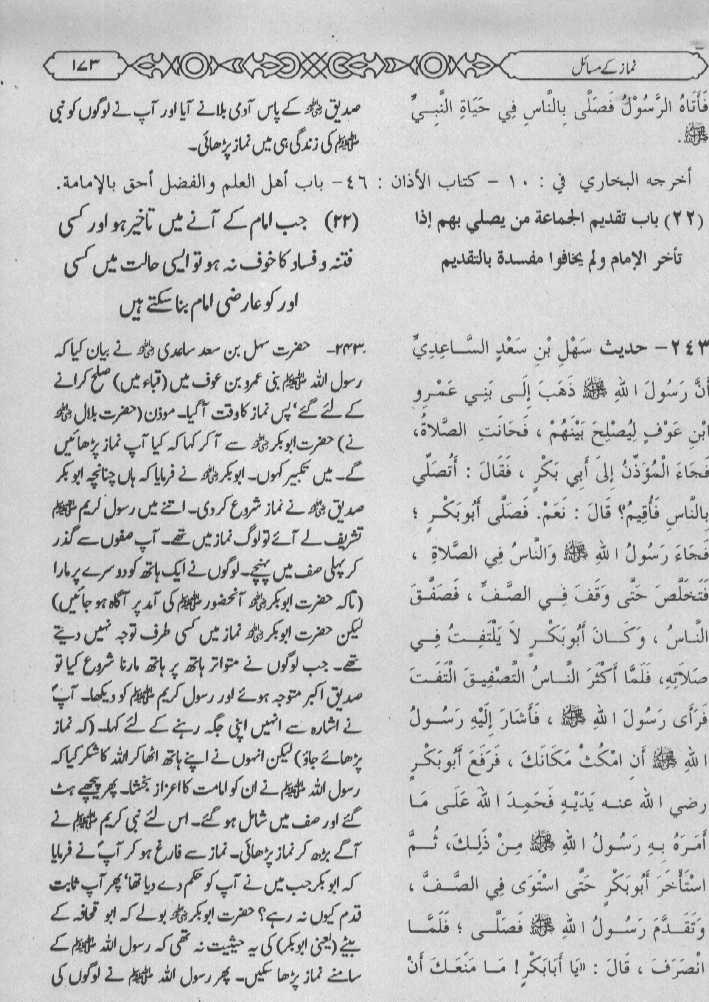 نماز کے مسائل
۱۷۳
فَأَتَاهُ الرَّسُوْلُ فَصَلَّى بِالنَّاسِ فِي حَيَاةِ النَّبِيِّ
ﷺ.
صدیق رضی اللہ عنہ کے پاس آدمی بلانے آیا اور آپ نے لوگوں کو نبی
ﷺ کی زندگی ہی میں نماز پڑھائی۔
أخرجه البخاري في : ١٠ - كتاب الأذان : ٤٦- باب أهل العلم والفضل أحق بالإمامة.
(٢٢) باب تقديم الجماعة من يصلي بهم إذا
تأخر الإمام ولم يخافوا مفسدة بالتقديم
(۲۲) جب امام کے آنے میں تاخیر ہو اور کسی
فتنہ و فساد کا خوف نہ ہو تو ایسی حالت میں کسی
اور کو عارضی امام بنا سکتے ہیں
٢٤٣- حديث سَهْلِ بْنِ سَعْدٍ السَّاعِدِيِّ
أَنَّ رَسُولَ اللهِ ﷺ ذَهَبَ إِلَى بَنِي عَمْرِو
ابْنِ عَوْفٍ لِيُصْلِحَ بَيْنَهُمْ ، فَحَانَتِ الصَّلاةُ،
فَجَاءَ الْمُؤَذِّنُ إلَى أَبِي بَكْرٍ ، فَقَالَ : أَتُصَلِّي
بِالنَّاسِ فَأُقِيمُ؟ قَالَ : نَعَمْ. فَصَلَّى أَبُوبَكْرٍ ؛
فَجَاءَ رَسُولُ اللهِ ﷺ وَالنَّاسُ فِي الصَّلاةِ ،
فَتَخَلَّصَ حَتَّى وَقَفَ فِي الصَّفِّ ، فَصَفَّقَ
النَّاسُ ، وَكَانَ أَبُوبَكْرٍ لاَ يَلْتَفِتُ فِي
صَلاَتِهِ، فَلَمَّا أَكْثَرَ النَّاسُ التَّصْفِيقَ الْتَفَتَ
فَرَأَى رَسُولَ اللهِ ﷺ ، فَأَشَارَ إِلَيْهِ رَسُولُ
اللهِ ﷺ أَنِ امْكُثْ مَكَانَكَ ، فَرَفَعَ أَبُوبَكْرٍ
رضي الله عنه يَدَيْهِ فَحَمِدَ اللهَ عَلَى مَا
أَمَرَهُ بِهِ رَسُولُ اللهِ ﷺ مِنْ ذَلِكَ، ثُمَّ
اسْتَأْخَرَ أَبُوبَكْرٍ حَتَّى اسْتَوَى فِي الصَّفِّ ،
وَتَقَدَّمَ رَسُولُ اللهِ ﷺ فَصَلَّى ؛ فَلَمَّا
انْصَرَفَ ، قَالَ : «يَا أَبَابَكْرٍ! مَا مَنَعَكَ أَنْ
۲۴۳- حضرت سہل بن سعد ساعدی رضی اللہ عنہ نے بیان کیا کہ
رسول اللہ ﷺ بنی عمرو بن عوف میں (قباء میں) صلح کرانے
کے لئے گئے، پس نماز کا وقت آگیا۔ موذن (حضرت بلال رضی اللہ عنہ
نے) حضرت ابوبکر رضی اللہ عنہ سے آ کر کہا کہ کیا آپ نماز پڑھائیں
گے۔ میں تکبیر کہوں۔ ابوبکر رضی اللہ عنہ نے فرمایا کہ ہاں چنانچہ ابوبکر
صدیق رضی اللہ عنہ نے نماز شروع کر دی۔ اتنے میں رسول کریم ﷺ
تشریف لے آئے تو لوگ نماز میں تھے۔ آپ صفوں سے گذر
کر پہلی صف میں پہنچے۔ لوگوں نے ایک ہاتھ کو دوسرے پر مارا
(تاکہ حضرت ابوبکر رضی اللہ عنہ آنحضور ﷺ کی آمد پر آگاہ ہو جائیں)
لیکن حضرت ابوبکر رضی اللہ عنہ نماز میں کسی طرف توجہ نہیں دیتے
تھے۔ جب لوگوں نے متواتر ہاتھ پر ہاتھ مارنا شروع کیا تو
صدیق اکبر متوجہ ہوئے اور رسول کریم ﷺ کو دیکھا۔ آپؐ
نے اشارہ سے انہیں اپنی جگہ رہنے کے لئے کہا۔ (کہ نماز
پڑھائے جاؤ) لیکن انہوں نے اپنے ہاتھ اٹھا کر اللہ کا شکر کیا کہ
رسول اللہ ﷺ نے ان کو امامت کا اعزاز بخشا۔ پھر پیچھے ہٹ
گئے اور صف میں شامل ہو گئے۔ اس لئے نبی کریم ﷺ نے
آگے بڑھ کر نماز پڑھائی۔ نماز سے فارغ ہو کر آپؐ نے فرمایا
کہ ابوبکر جب میں نے آپ کو حکم دے دیا تھا، پھر آپ ثابت
قدم کیوں نہ رہے؟ حضرت ابوبکر رضی اللہ عنہ بولے کہ ابو قحافہ کے
بیٹے (یعنی ابوبکر) کی یہ حیثیت نہ تھی کہ رسول اللہ ﷺ کے
سامنے نماز پڑھا سکیں۔ پھر رسول اللہ ﷺ نے لوگوں کی